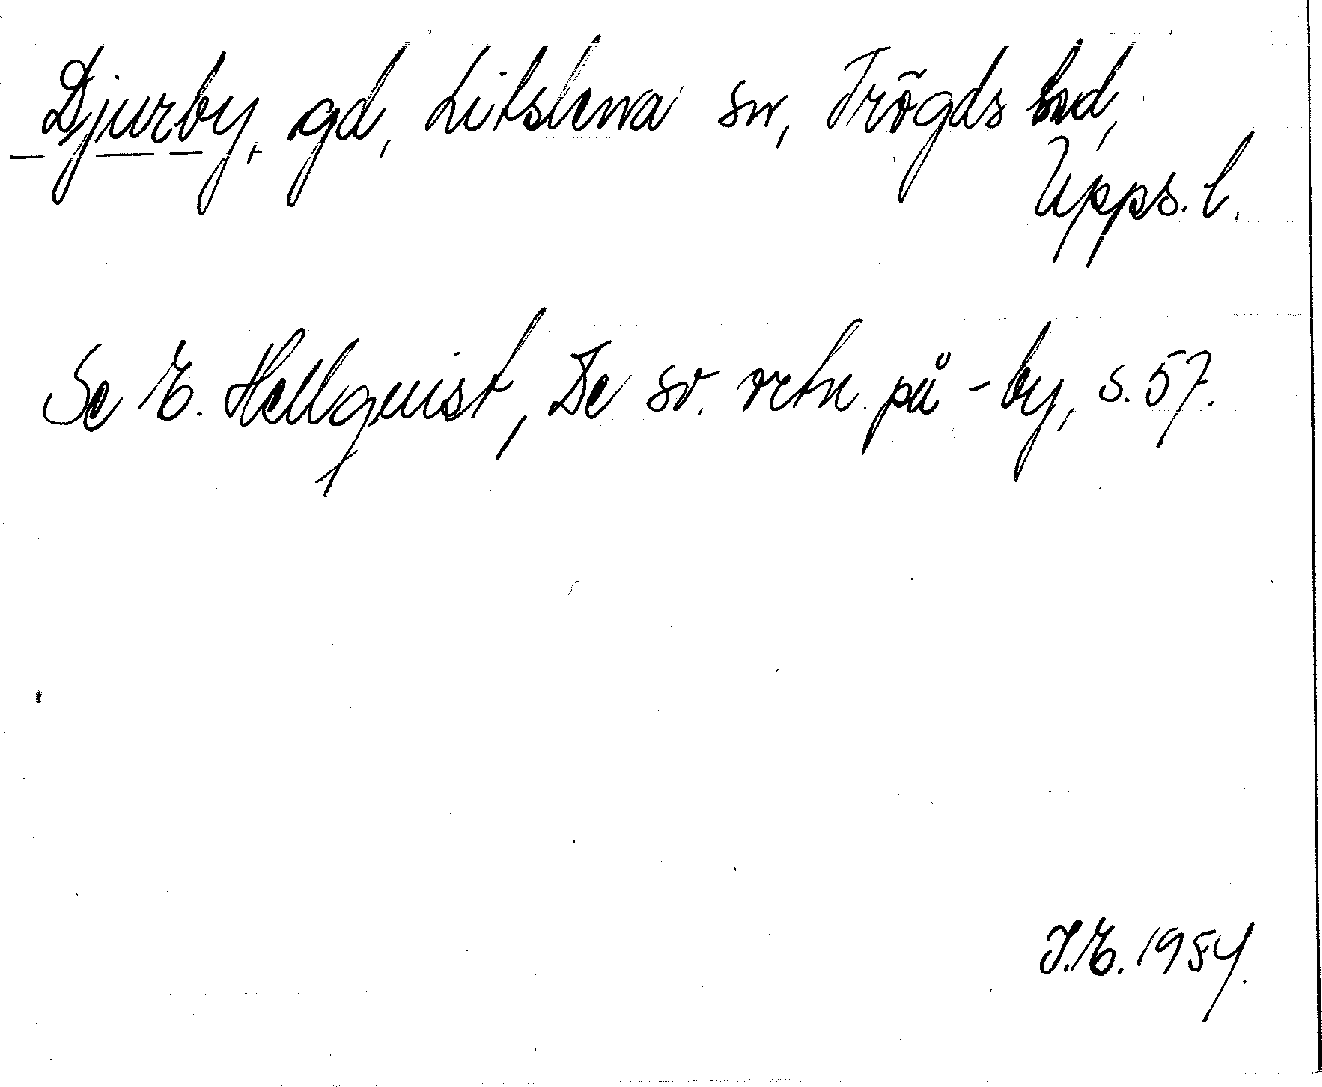 Djurby, gd, Litslena sn, Trögds hd,
Upps. l.
Se E. Hellquist, De sv. ortn. på -by, s. 57.
J.E. 1954.